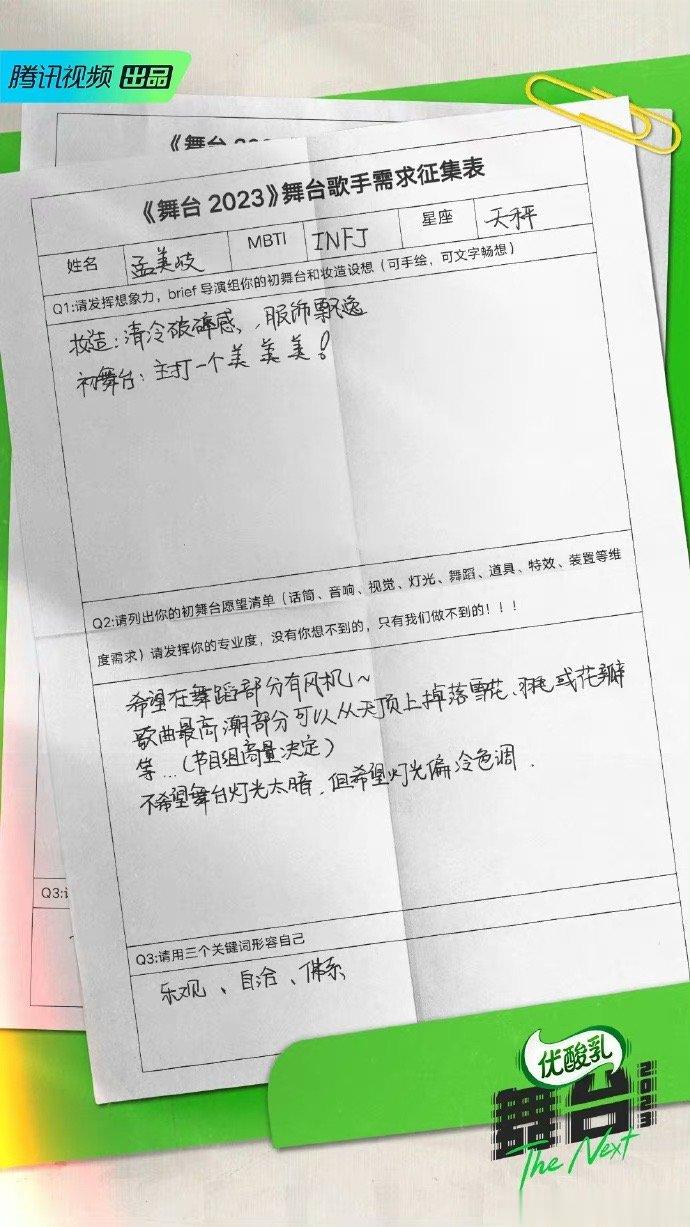 腾讯视频 出品
《舞台 2023》舞台歌手需求征集表
姓名 孟美岐 MBTI INFJ 星座 天秤
Q1:请发挥想象力，brief 导演组你的初舞台和妆造设想（可手绘，可文字畅想）
妆造：清冷破碎感、服饰飘逸
初舞台：主打一个美 美 美！
Q2:请列出你的初舞台愿望清单（话筒、音响、视觉、灯光、舞蹈、道具、特效、装置等维
度需求）请发挥你的专业度，没有你想不到的，只有我们做不到的！！！
希望在舞蹈部分有风机~
歌曲最高潮部分可以从天顶上掉落雪花、羽毛或花瓣
等...（节目组商量决定）
不希望舞台灯光太暗，但希望灯光偏冷色调．
Q3:
Q3:请用三个关键词形容自己
乐观、自洽、佛系
优酸乳
舞台 2023
The Next